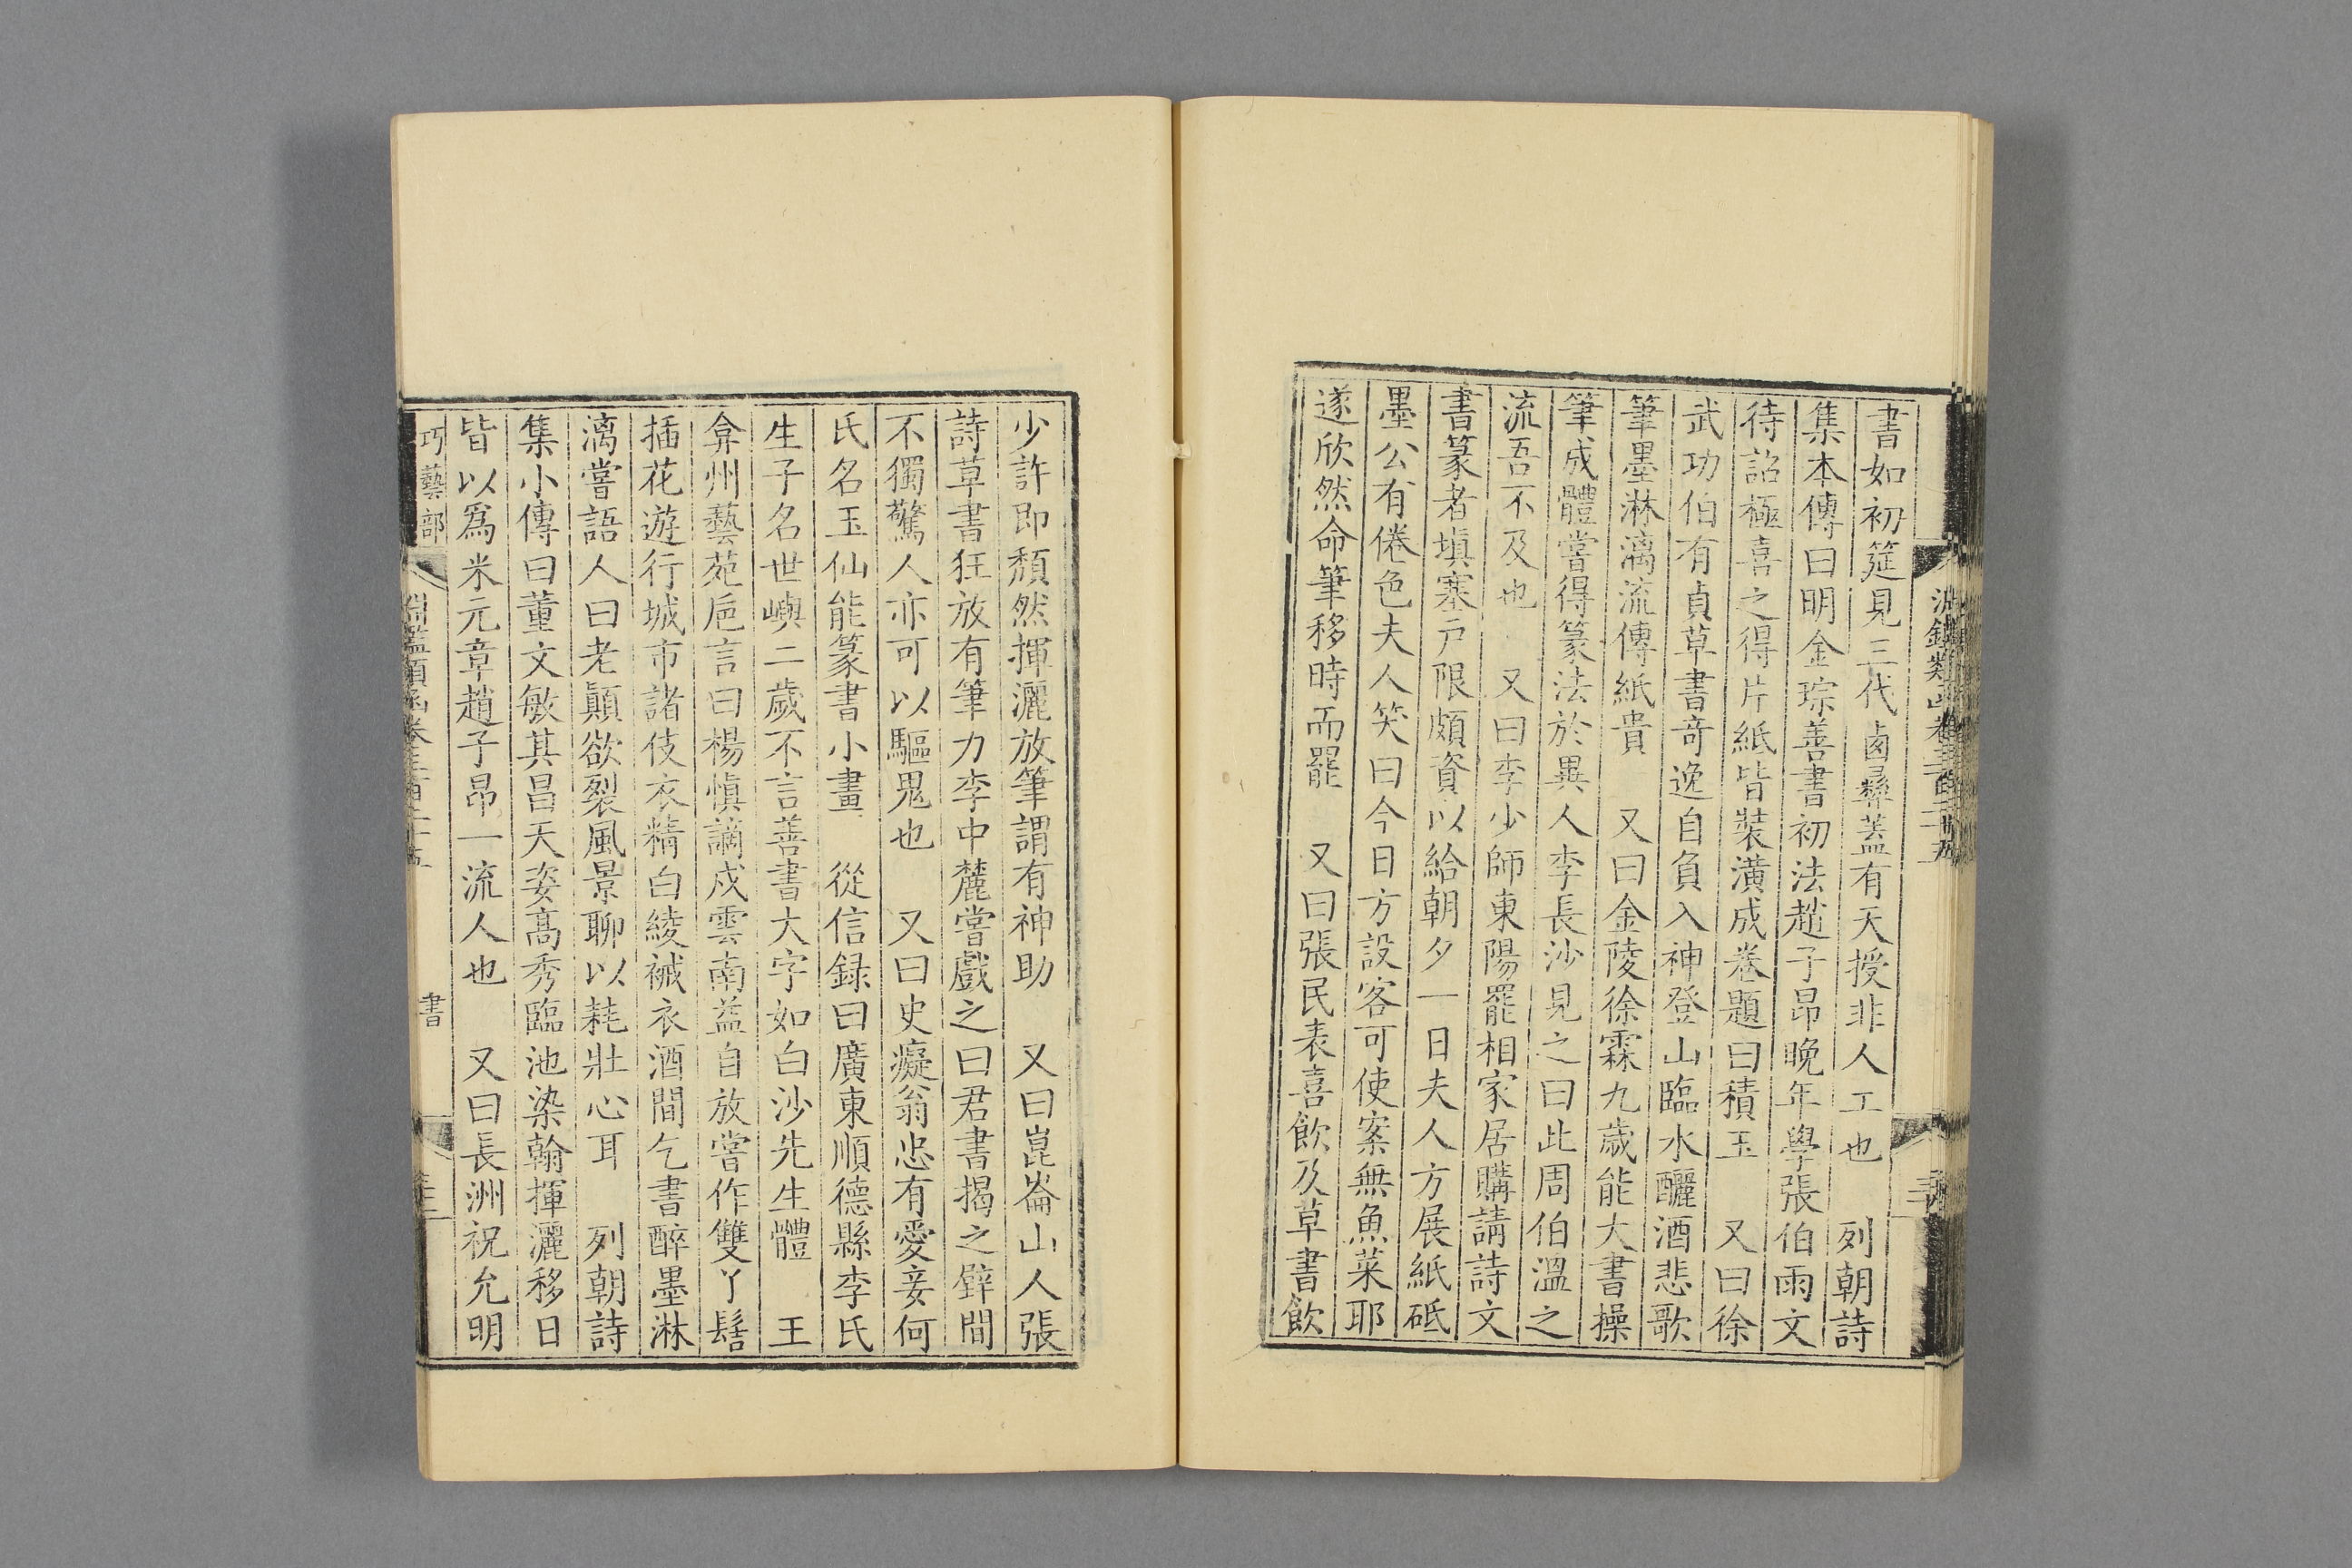 書如初筵見三代鹵彝蓋有天授非人工也　列朝詩
集本傳曰明金琮善書初法趙子昂晚年學張伯雨文
待詔極喜之得片紙皆裝潢成卷題曰積玉　又曰徐
武功伯有貞草書奇逸自負入神登山臨水釃酒悲歌
筆墨淋漓流傳紙貴　又曰金陵徐霖九歲能大書操
筆成體嘗得篆法於異人李長沙見之曰此周伯溫之
流吾不及也　又曰李少師東陽罷相家居購請詩文
書篆者塡塞戸限頗資以給朝夕一日夫人方展紙砥
墨公有倦色夫人笑曰今日方設客可使案無魚菜耶
遂欣然命筆移時而罷　又曰張民表喜飲及草書飲
少許即頹然揮灑放筆謂有神助　又曰崑崙山人張
詩草書狂放有筆力李中麓嘗戲之曰君書揭之壁間
不獨驚人亦可以驅鬼也　又曰史癡翁忠有愛妾何
氏名玉仙能篆書小畫　從信録曰廣東順德縣李氏
生子名世嶼二歲不言善書大字如白沙先生體　王
弇州藝苑巵言曰楊慎謫戍雲南益自放嘗作雙丫髻
插花遊行城市諸伎衣精白綾裓衣酒間乞書醉墨淋
漓嘗語人曰老顚欲裂風景聊以耗壯心耳　列朝詩
集小傳曰董文敏其昌天姿高秀臨池染翰揮灑移日
皆以爲米元章趙子昂一流人也　又曰長洲祝允明
巧藝部
書